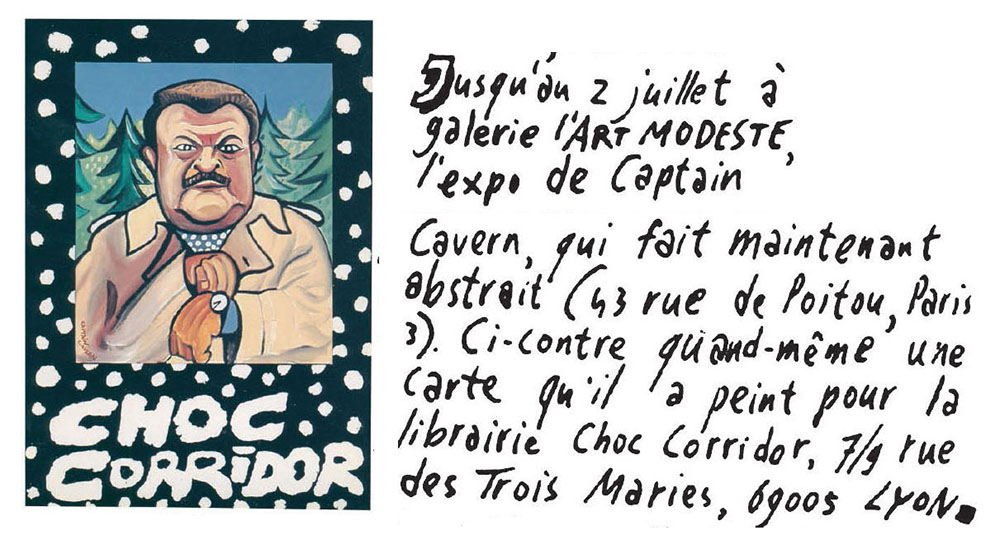 CHOC
CORRIDOR
Jusqu'au 2 juillet à
galerie l'ART MODESTE,
l'expo de Captain
Cavern, qui fait maintenant
abstrait (43 rue de Poitou, Paris
3). Ci-contre quand-même une
carte qu'il a peint pour la
librairie Choc Corridor, 7/9 rue
des Trois Maries, 69005 LYON.